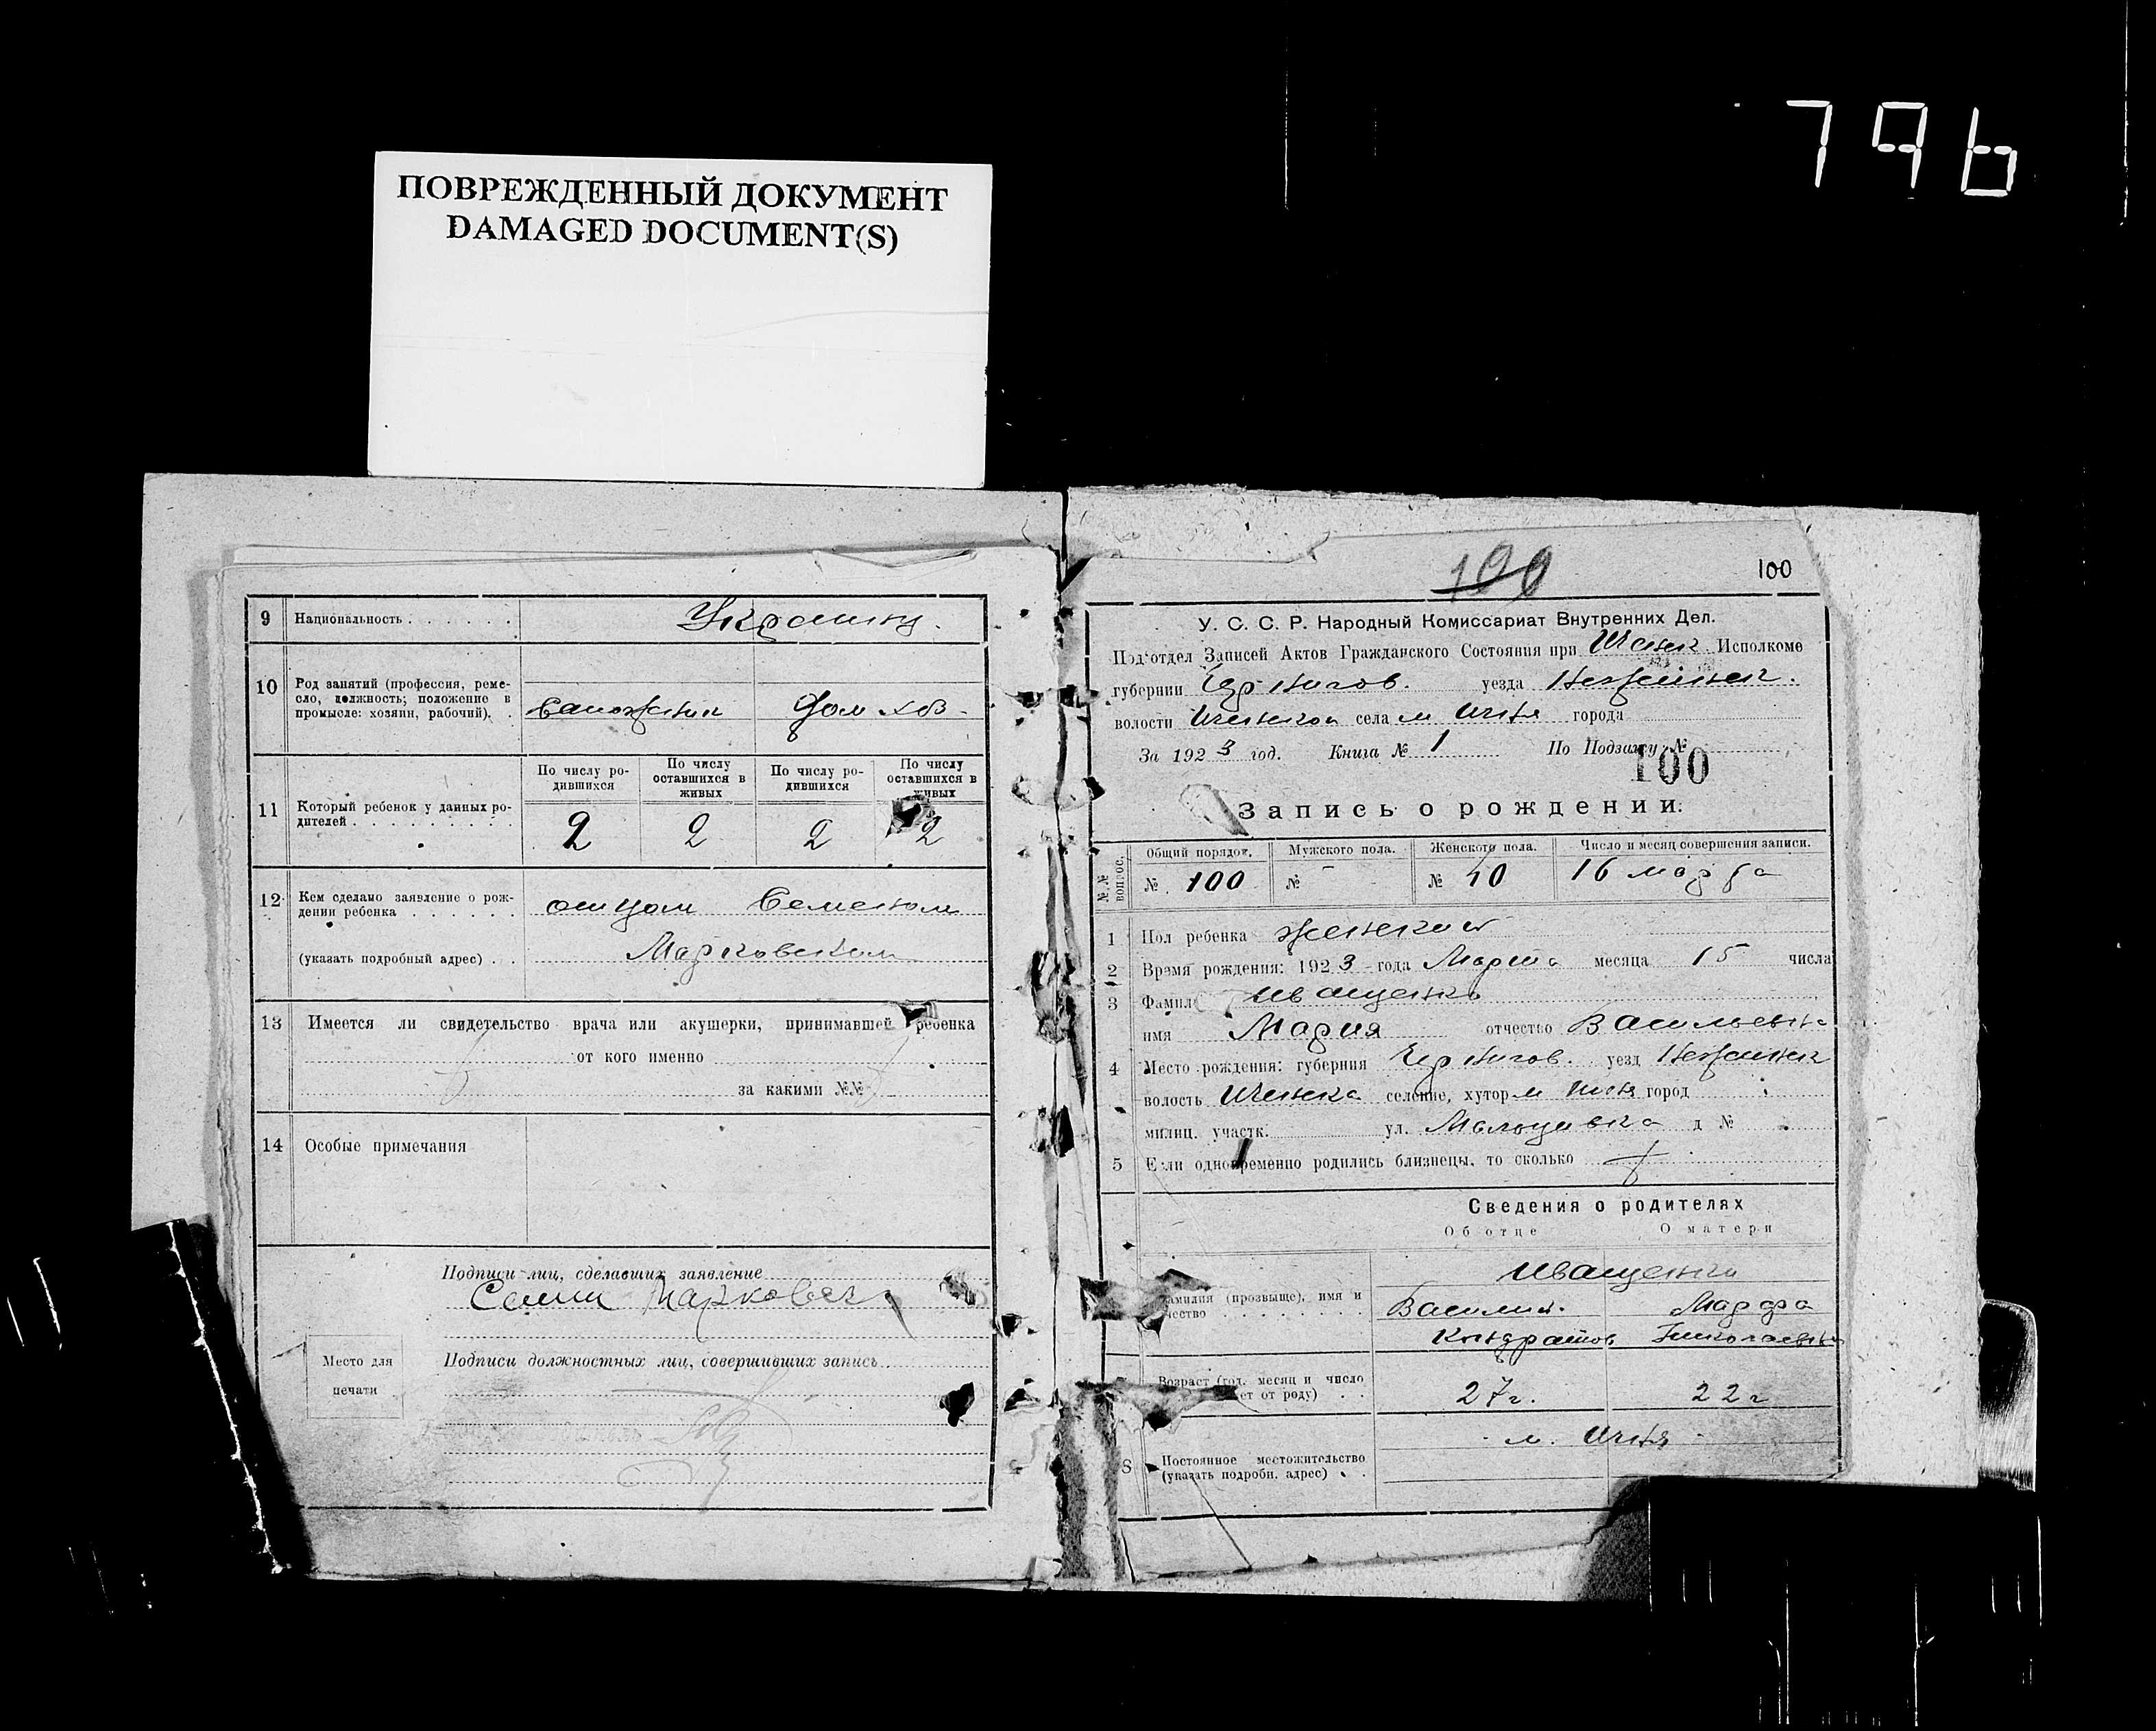 796
ПОВРЕЖДЕННЫЙ ДОКУМЕНТ
DAMAGED DOCUMENT(S)
9 Национальность . . . . . . Украинцы.
10 Род занятий (профессия, реме-
сло, должность; положение в
промысле: хозяин, рабочий). . Сапожник Дом хоз.
11 Который ребенок у данных ро-
дителей . . . . . . . . .
По числу ро-
дившихся
По числу
оставшихся в
живых
По числу ро-
дившихся
По числу
оставшихся в
живых
2 2 2 2
12 Кем сделано заявление о рож-
дении ребенка . . . . . . отцом Семеном
(указать подробный адрес) . . Марковским
13 Имеется ли свидетельство врача или акушерки, принимавшей ребенка
от кого именно
за какими №№
14 Особые примечания
Подписи лиц, сделавших заявление
Подписи должностных лиц, совершивших запись
Место для
печати
100 100
У. С. С. Р. Народный Комиссариат Внутренних Дел.
Под'отдел Записей Актов Гражданского Состояния при Иченск. Исполкоме
губернии Чернигов. уезда Нежинск.
волости Иченской села м Ичня города
За 1923 год. Книга № 1 По Подзагсу №
100
Запись о рождении.
№№ вопрос.
Общий порядок. Мужского пола. Женского пола. Число и месяц совершения записи.
№ 100 № - № 40 16 марта
1 Пол ребенка женский
2 Время рождения: 1923 года Марта месяца 15 числа
3 Фамил Иващенко
имя Мария отчество Васильевна
4 Место рождения: губерния Чернигов. уезд Нежинск
волость Иченска селение, хутор м Ичня город
милиц. участк. ул. д №
5 Если одновременно родились близнецы, то сколько
Сведения о родителях
Об отце О матери
Иващенки
амилия (прозвыще), имя и
чество . . . . . . . Василий. Марфа
Кондратов Николаевна
Возраст (год, месяц и число
ет от роду) . . 27 г. 22 г
м. Ичня
8 Постоянное местожительство
(указать подробн. адрес) . .